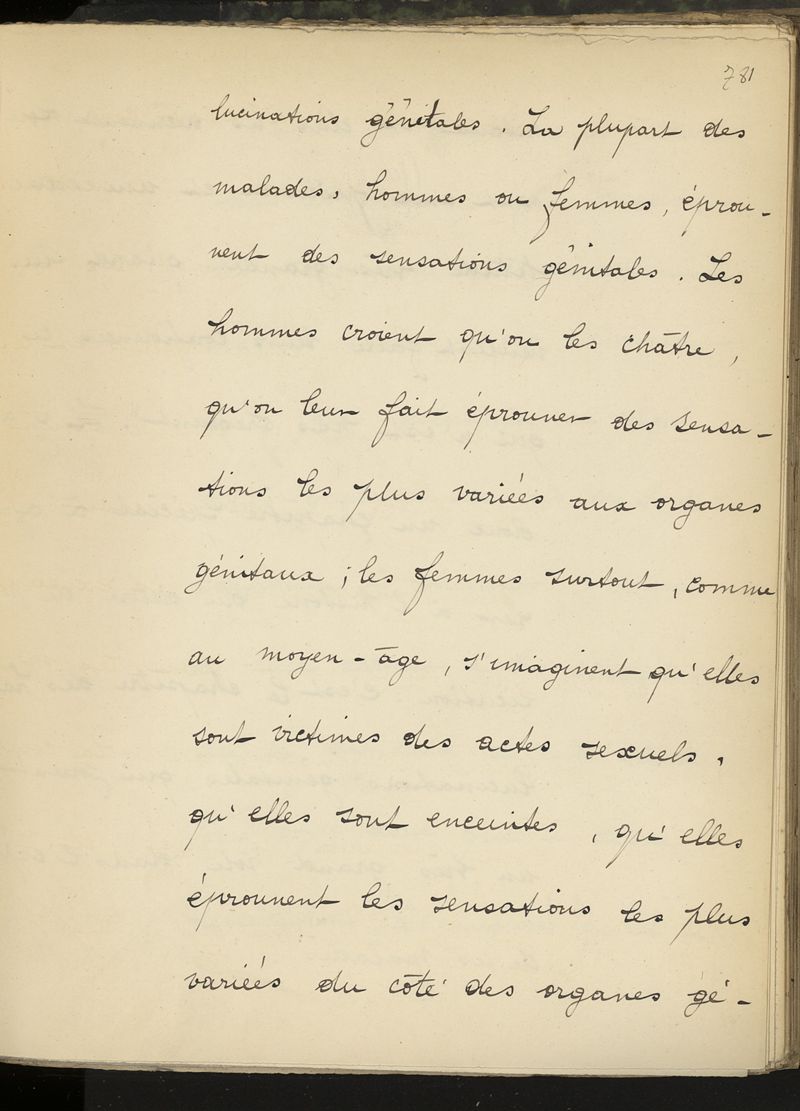 781
lucinations génitales. La plupart des
malades, hommes ou femmes, éprou-
vent des sensations génitales. Les
hommes croient qu'on les châtre,
qu'on leur fait éprouver des sensa-
tions les plus variées aux organes
génitaux ; les femmes surtout, comme
au moyen-âge, s'imaginent qu'elles
sont victimes des actes sexuels,
qu'elles sont enceintes, qu'elles
éprouvent les sensations les plus
variées du côté des organes gé-